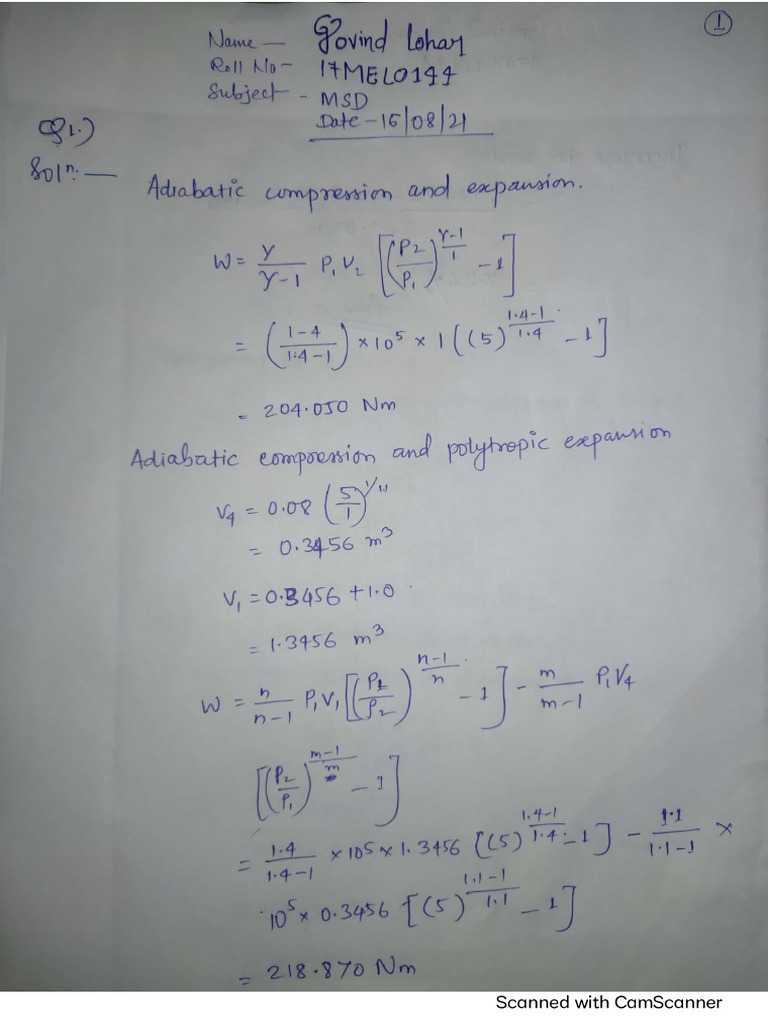 1
Name — Govind Lohar
Roll No - 17MEL0144
Subject - MSD
Date - 15/08/21
Q1.)
Solⁿ: — Adiabatic compression and expansion.
W = γ/(γ-1) P₁V₂ [(P₂/P₁)^((γ-1)/1) - 1]
= ((1-4)/(1.4-1)) × 10⁵ × 1 ((5)^((1.4-1)/1.4) - 1]
= 204.050 Nm
Adiabatic compression and polytropic expansion
V₄ = 0.08 (5/1)^(1/1.1)
= 0.3456 m³
V₁ = 0.3456 + 1.0
= 1.3456 m³
W = n/(n-1) P₁V₁ [(P₁/P₂)^((n-1)/n) - 1] - m/(m-1) P₁V₄
[(P₂/P₁)^((m-1)/m) - 1]
= 1.4/(1.4-1) × 10⁵ × 1.3456 [(5)^((1.4-1)/1.4) - 1] - 1.1/(1.1-1) ×
10⁵ × 0.3456 [(5)^((1.1-1)/1.1) - 1]
= 218.870 Nm
Scanned with CamScanner